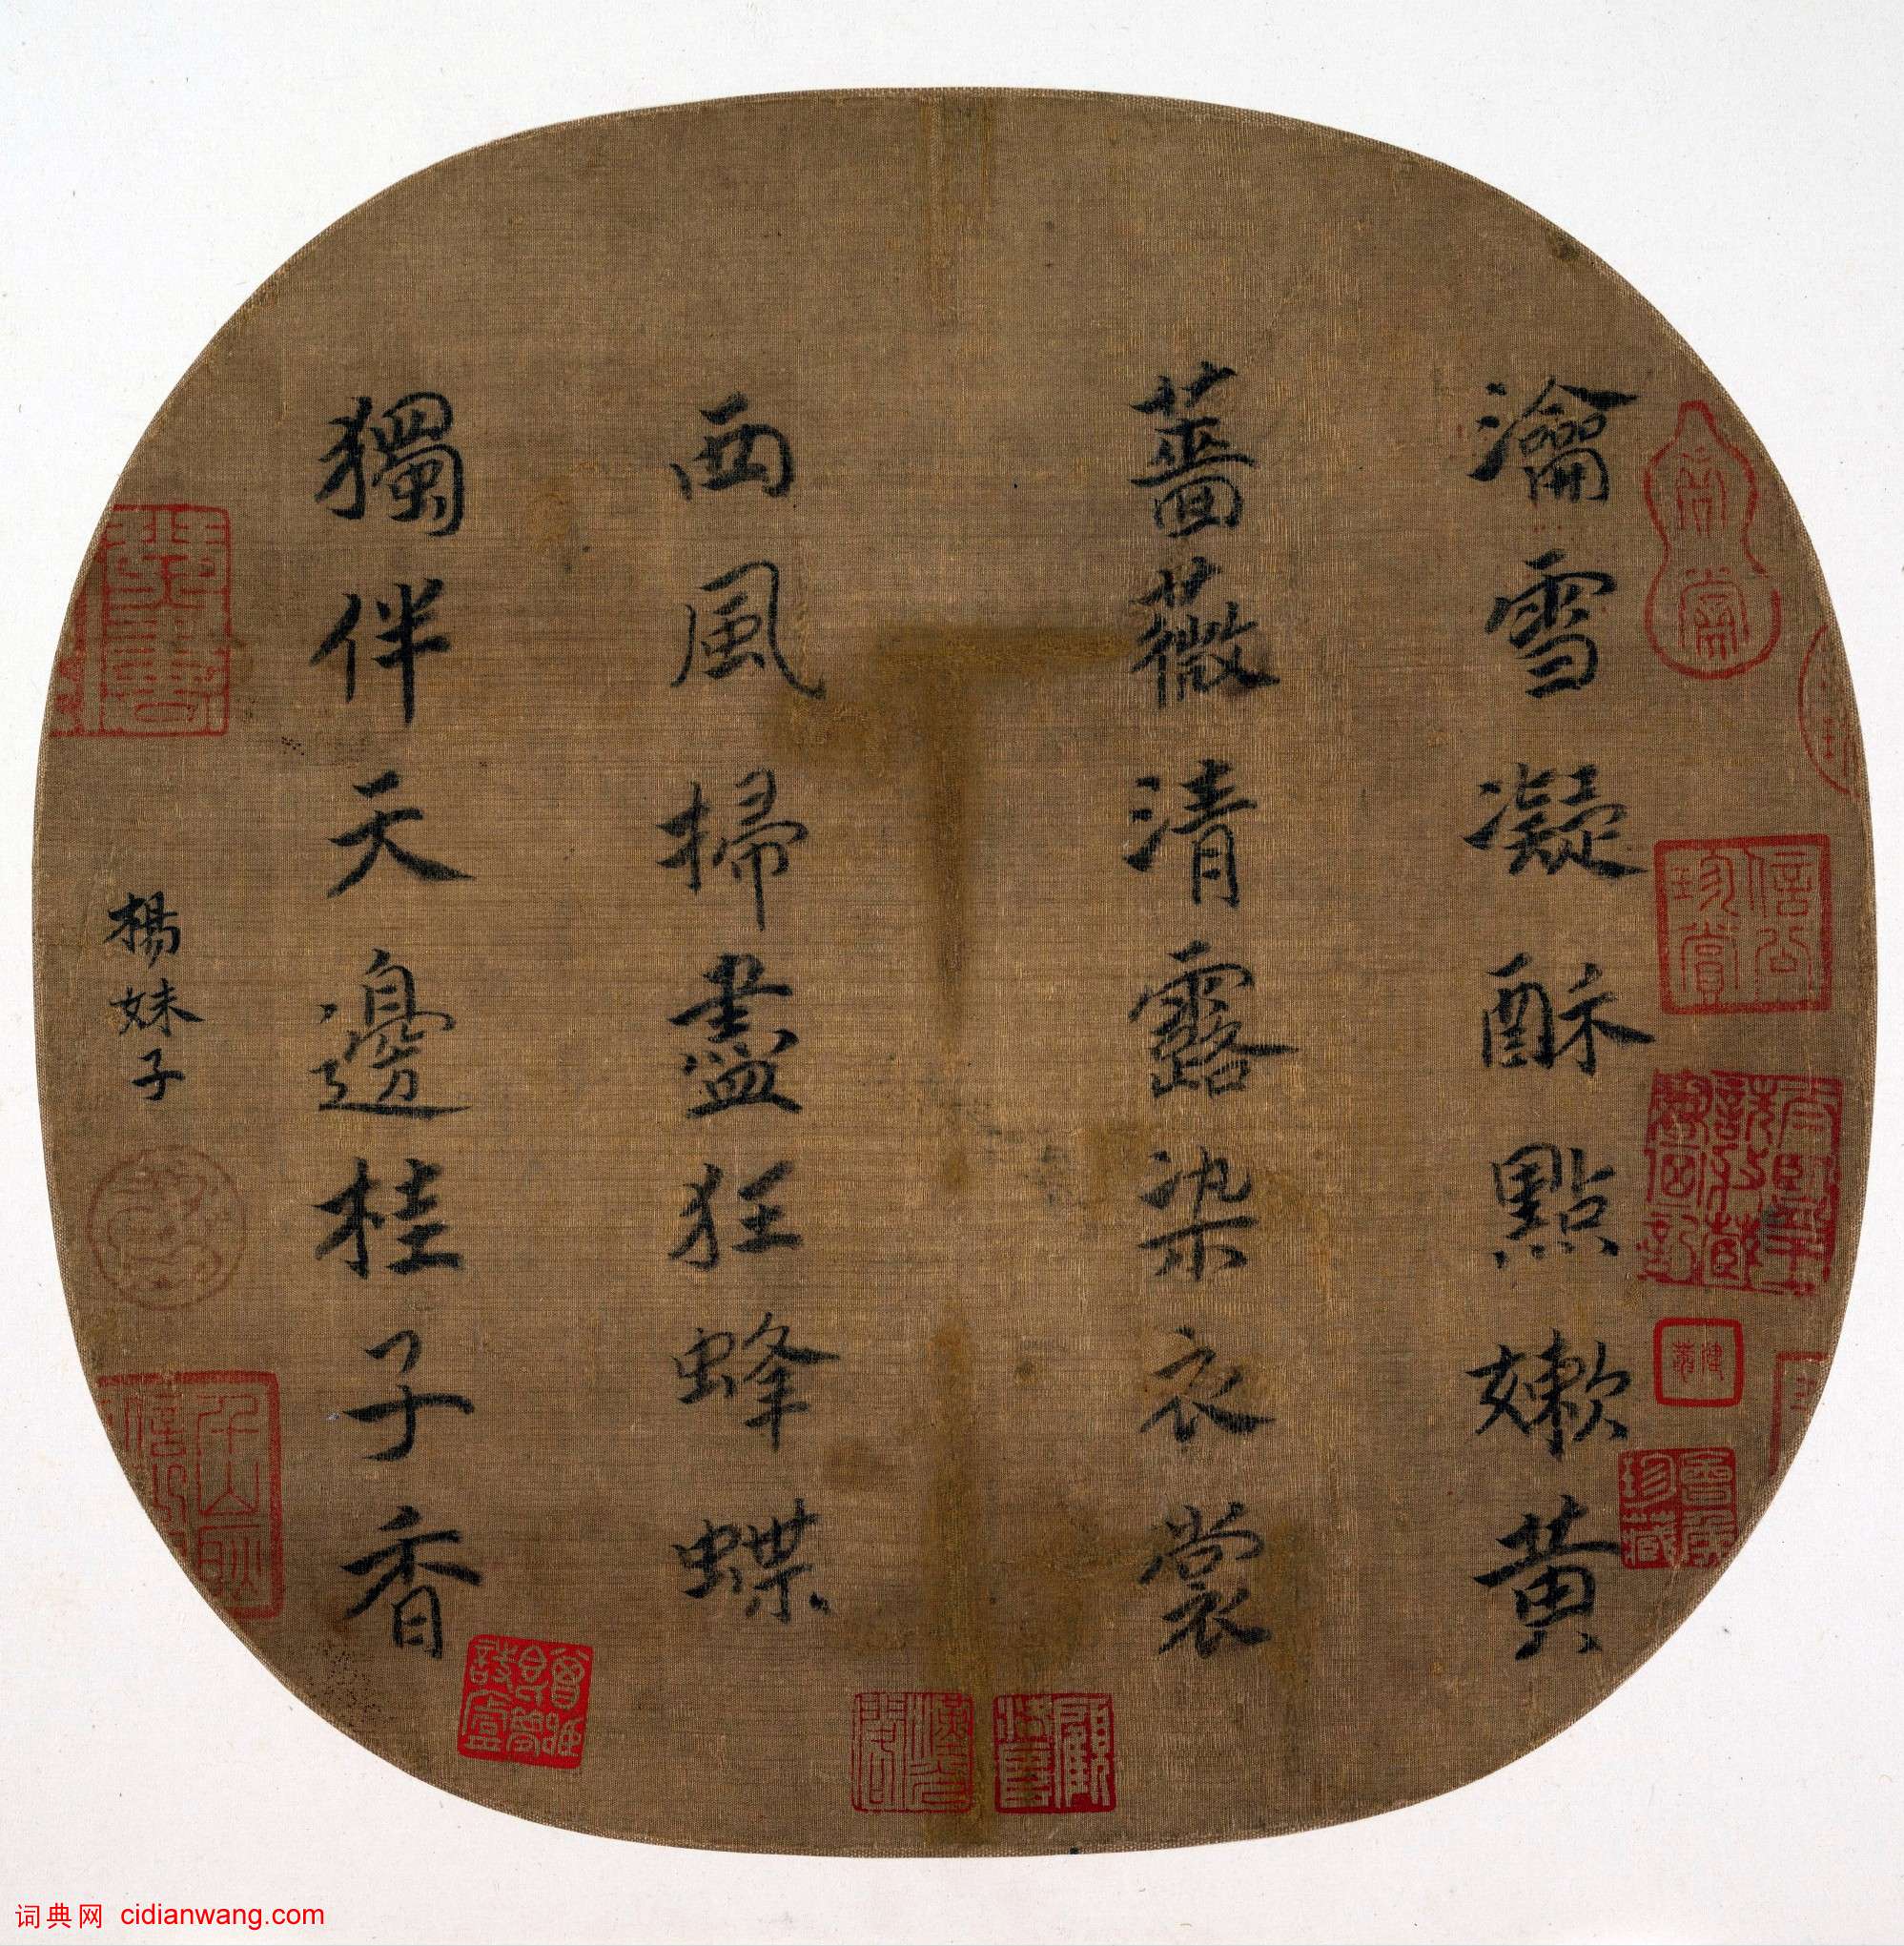 瀹雪凝酥點嫩黃
薔薇清露染衣裳
西風掃盡狂蜂蝶
獨伴天邊桂子香
楊妹子
信公珍賞
珍藏
词典网 cidianwang.com